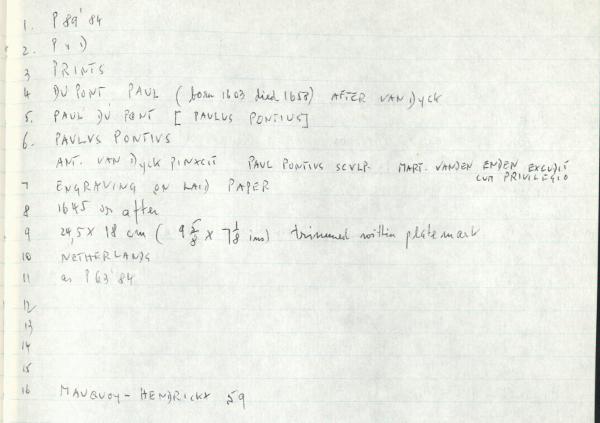 1. P 89'84
2. P ii)
3 PRINTS
4 DU PONT PAUL (born 1603 died 1658) AFTER VAN DYCK
5. PAUL DU PONT [PAULUS PONTIUS]
6. PAVLVS PONTIVS
ANT. VAN DYCK PINXCIT PAUL PONTIUS SCULP. MART. VANDEN ENDEN EXCUDIT
CUM PRIVILEGIO
7 ENGRAVING ON LAID PAPER
8 1645 or after
9 24,5 X 18 cm (9 5/8 x 7 1/8 ins) trimmed within plate mark
10 NETHERLANDS
11 as P 63'84
12
13
14
15
16 MAUQUOY-HENDRICKX 59